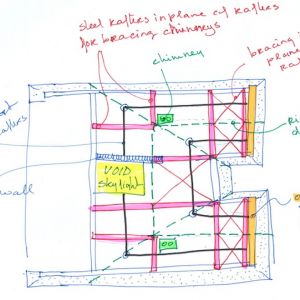 steel rafters in plane of rafters
for bracing chimneys
chimney
bracing i
plane
ra
rafters
wall
VOID
skylight
Ri
d